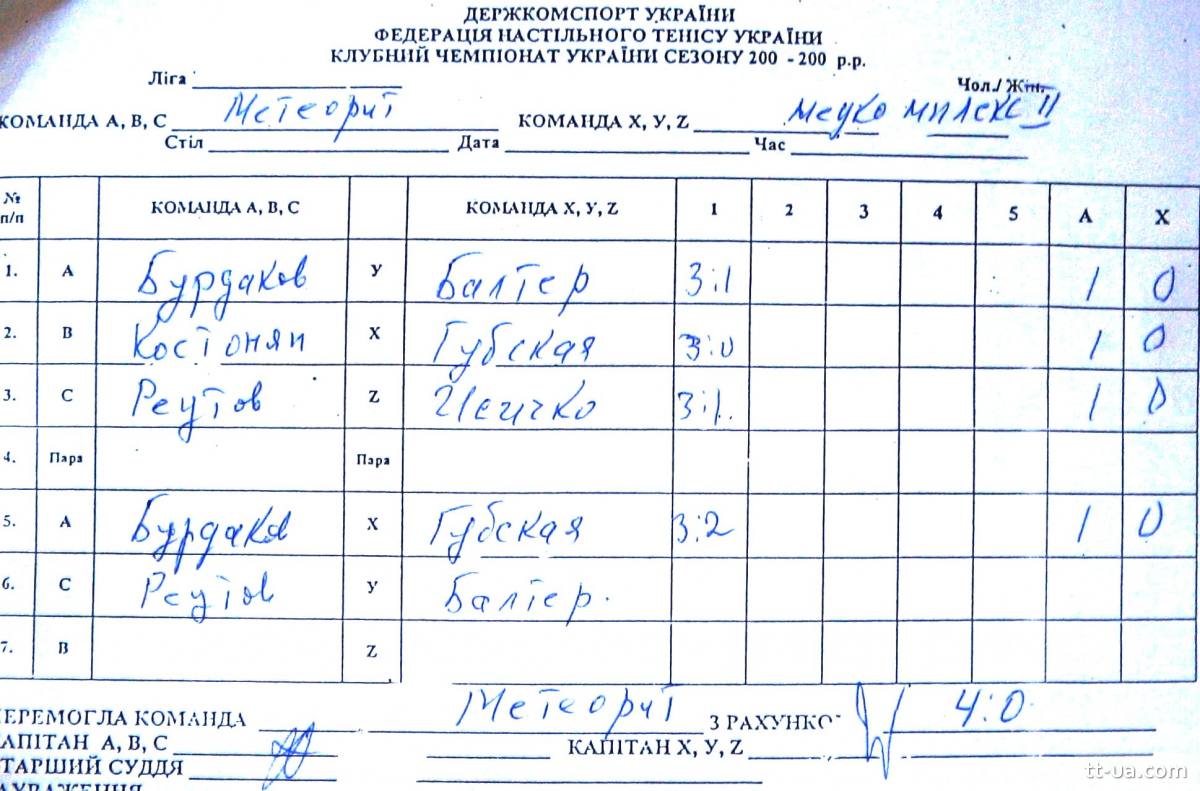 ДЕРЖКОМСПОРТ УКРАЇНИ
ФЕДЕРАЦІЯ НАСТІЛЬНОГО ТЕНІСУ УКРАЇНИ
КЛУБНИЙ ЧЕМПІОНАТ УКРАЇНИ СЕЗОНУ 200 - 200 р.р.
Ліга Чол./ Жін.
КОМАНДА А, В, С Метеорит КОМАНДА X, У, Z II
Стіл Дата Час
№ п/п КОМАНДА А, В, С КОМАНДА X, У, Z 1 2 3 4 5 А X
1. А Бурдаков У Балтер 3:1 1 0
2. В Костонян X Губская 3:0 1 0
3. С Реутов Z 3:1. 1 0
4. Пара Пара
5. А Бурдаков X Губская 3:2 1 0
6. С Реутов У Балтер.
7. В Z
ЕРЕМОГЛА КОМАНДА Метеорит З РАХУНКО 4:0
АПІТАН А, В, С КАПІТАН X, У, Z
ТАРШИЙ СУДДЯ
tt-ua.com